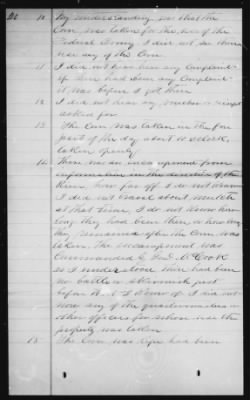 10 My understanding was that the
Corn was taken for the use of the
Federal Army I did not see them
use any of the Corn
11 I did not hear of any Complaint
if there had been any Complaint
it was before I got there
12 I did not hear any voucher or receipt
asked for
13 The Corn was taken in the fore
part of the day about 10 oclock,
taken openly
14 There was an encampment from
information in the direction of the
River, how far off I do not know
I did not travel about much
at that time. I do not know how
long they had been there, or how long
they remained after the Corn was
taken. The encampment was
Commanded by Genl. McCook
as I understood there had been
no battle or skirmish just
before that I know of. I did not
know any of the quartermasters or
other officers for whose use the
property was taken
15 The Corn was ripe had been